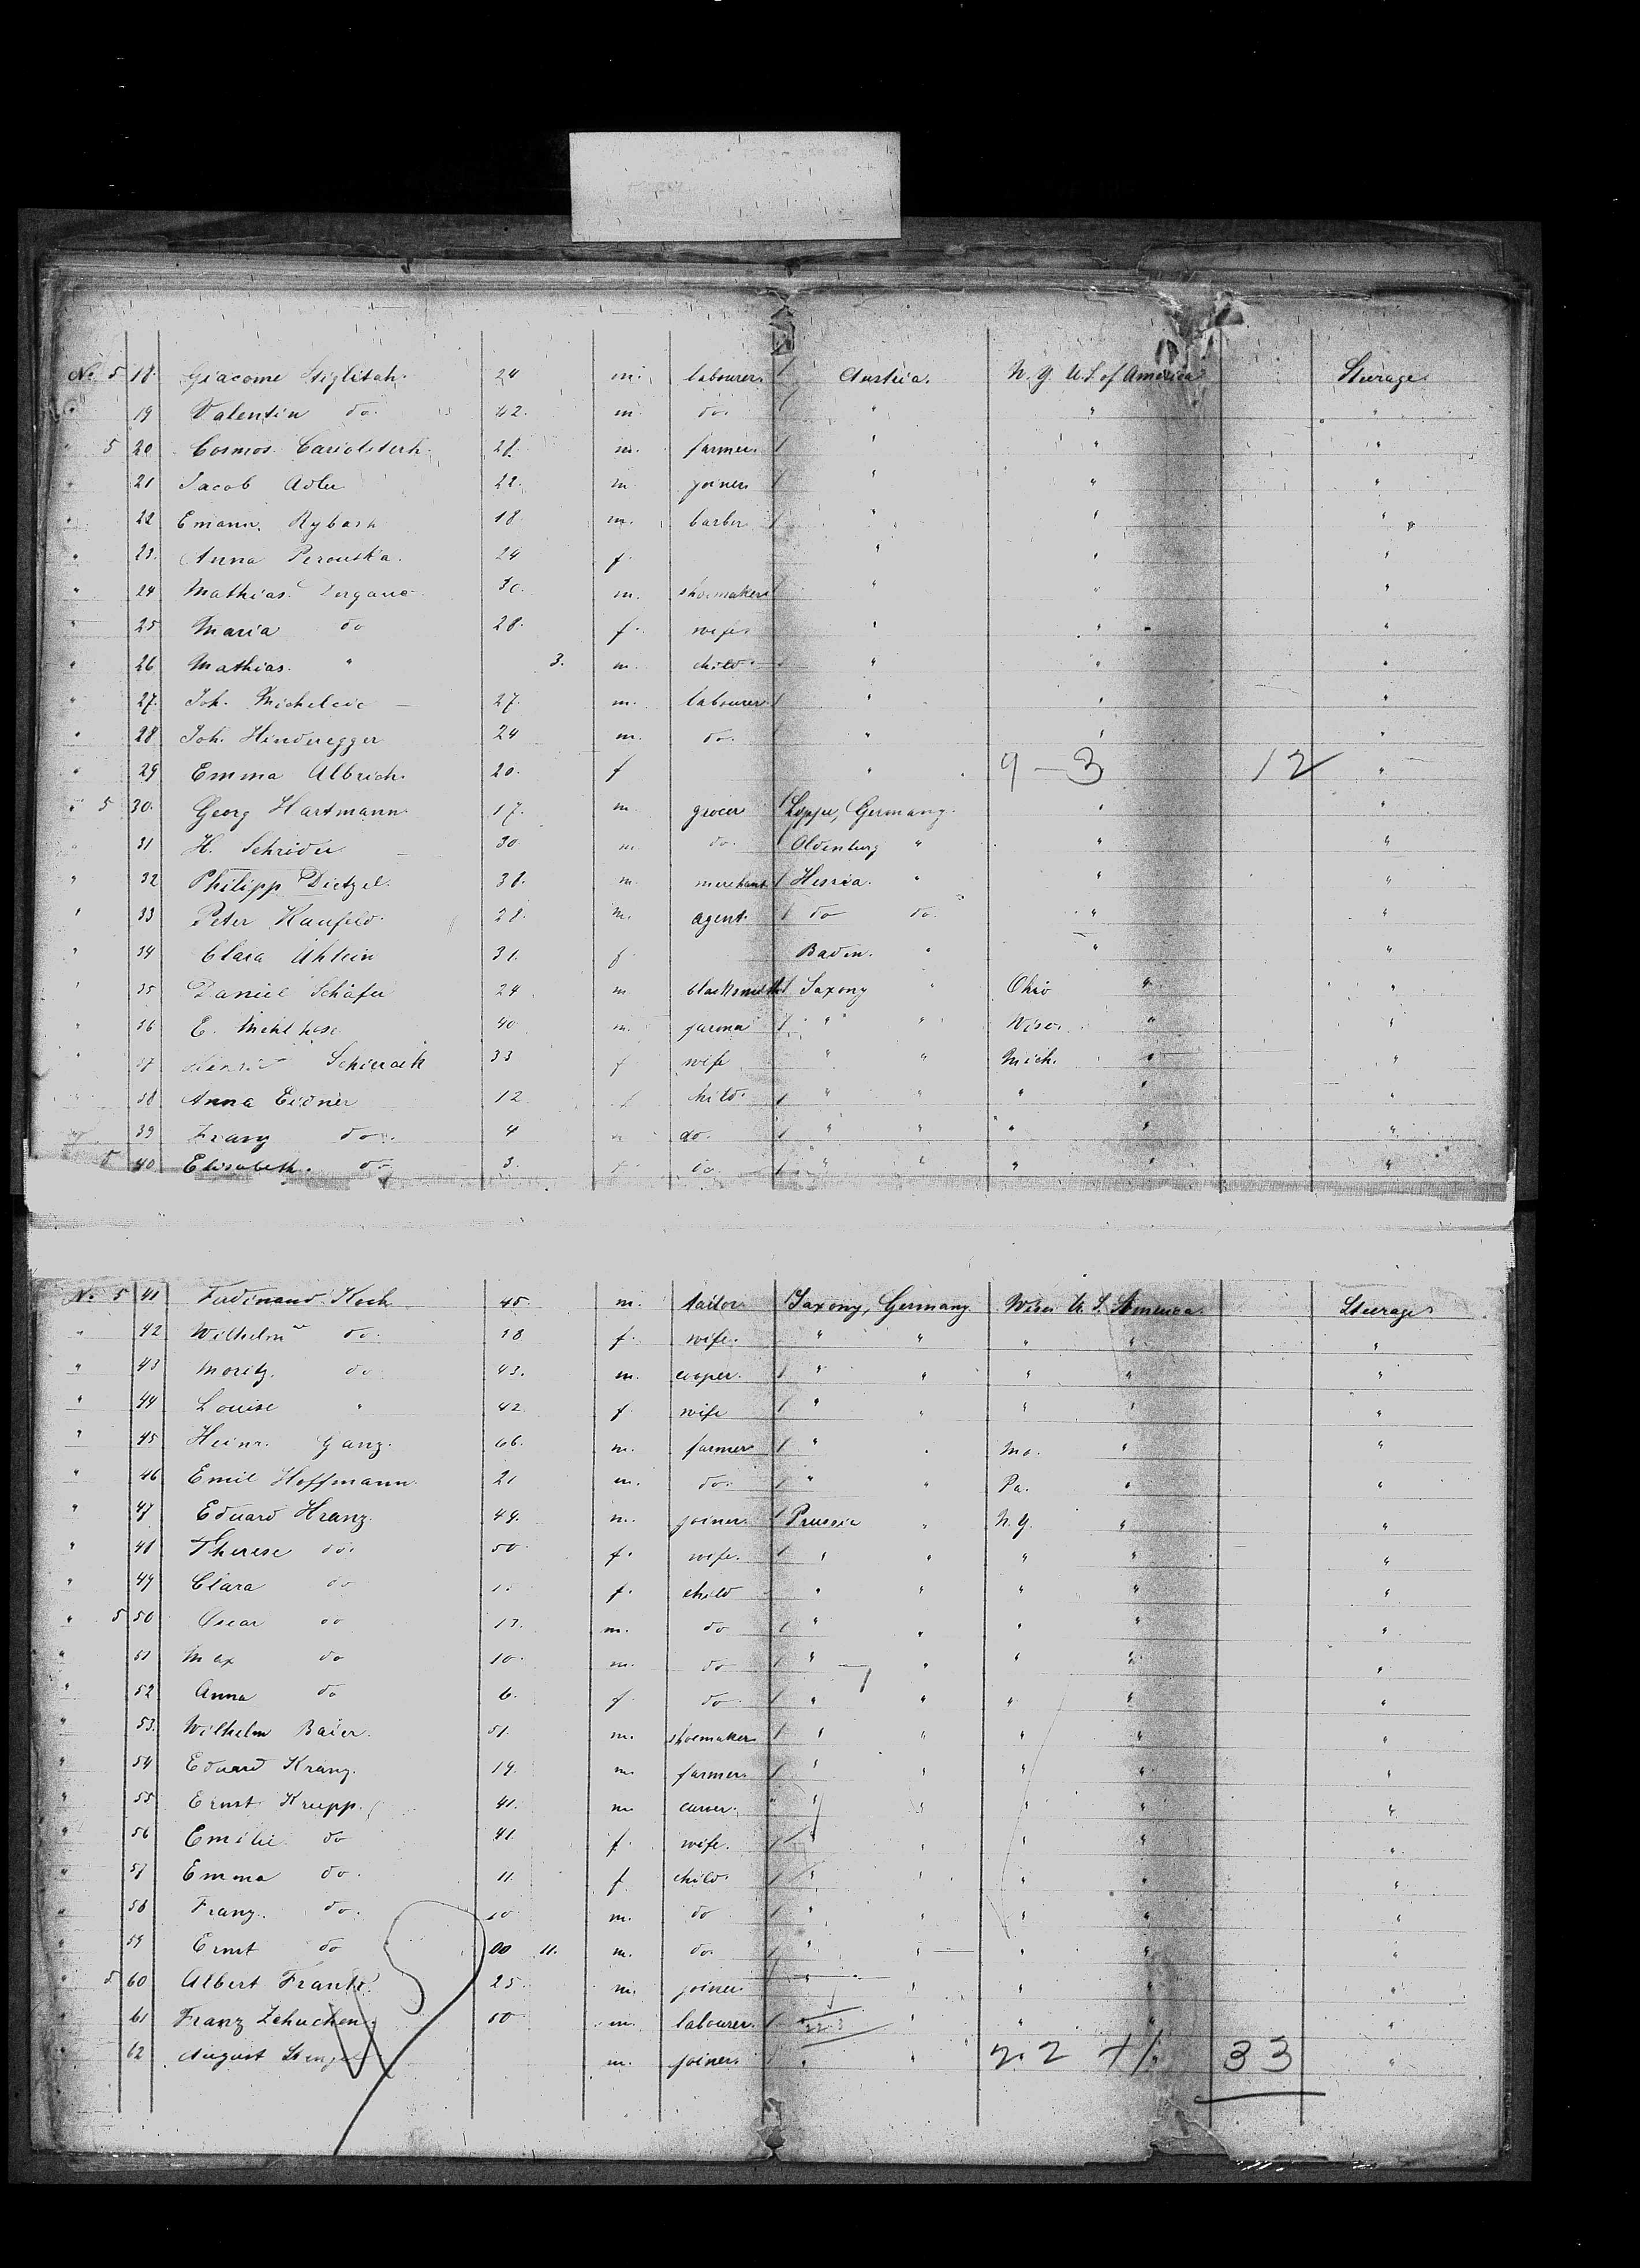 No. 5 18. Giacome Stiglitah. 24 m. labourer. Austria. N. Y. U.S. of America Steerage
" 19 Valentin do. 42. m. do. " " "
" 5 20 Cosmos 28. m. farmer " " "
" 21 Jacob Adler 22. m. joiner " " "
" 22 Emann. Rybash 18 m. barber " " "
" 23. Anna Perouska. 24 f. " " "
" 24 Mathias 30. m. shoemaker " " "
" 25 Maria do 28. f. wife " " "
" 26 Mathias. " 3. m. child " " "
" 27. Joh. Michelcic 27. m. labourer. " " "
" 28 Joh. Hinderegger 24 m. do. " " "
" 29 Emma Albrich. 20. f " 9 - 3 12 "
" 5 30. Georg Hartmann 17. m. grocer Lippe, Germany. " "
" 31 H. Schrider 30. m. do. Oldenburg " " "
" 32 Philipp Dietzel. 38. m. merchant Hessia. " " "
" 33 Peter Kaufeld. 28. m. agent. do do. " "
" 34 Clara Uhlein 31. f Baden. " " "
" 35 Daniel Schäfer 24. m blacksmith Saxony " Ohio " "
" 36 E. Mehlhose 40. m. farmer " " Wisc. " "
" 37 Schierack 33 f wife " " Mich. " "
" 38 Anna Eidner 12 f child. " " " " "
" 39 Franz do. 4 m do. " " " " "
5 40 Elisabeth. do 3. do. " " " " "
No. 5 41 Ferdinand Koch 45. m. tailor Saxony, Germany Wisc. U. S. America. Steerage
" 42 Wilhelm do. 38 f. wife. " " " " "
" 43 Moritz. do 43. m. cooper. " " " " "
" 44 Louise " 42 f. wife " " " " "
" 45 Heinr. Ganz. 66. m. farmer " " Mo. " "
" 46 Emil Hoffmann 21 m. do. " " Pa. " "
" 47 Eduard Kranz. 49. m. joiner Prussia " N. Y. " "
" 48 Therese do. 50. f. wife. " " " " "
" 49 Clara do 15 f. child " " " " "
" 5 50 Oscar do 13. m. do " " " " "
" 51 Max do 10. m. do " " " " "
" 52 Anna do 6. f. do " " " " "
" 53. Wilhelm Baier. 51. m. shoemaker " " " " "
" 54 Eduard Kranz. 19. m. farmer " " " " "
" 55 Ernst Krupp. 41. m carver. " " " " "
" 56 Emilie do 41. f. wife. " " " " "
" 57 Emma do. 11. f. child. " " " " "
" 58 Franz. do. 10 m. do " " " " "
" 59 Ernst do 00 11. m. do. " " " " "
" 5 60 Albert Frank 25 m. joiner " " " " "
" 61 Franz Zehuchen 50 m. labourer. " " " " "
" 62 August m. joiner " " 22 + 11 33 "